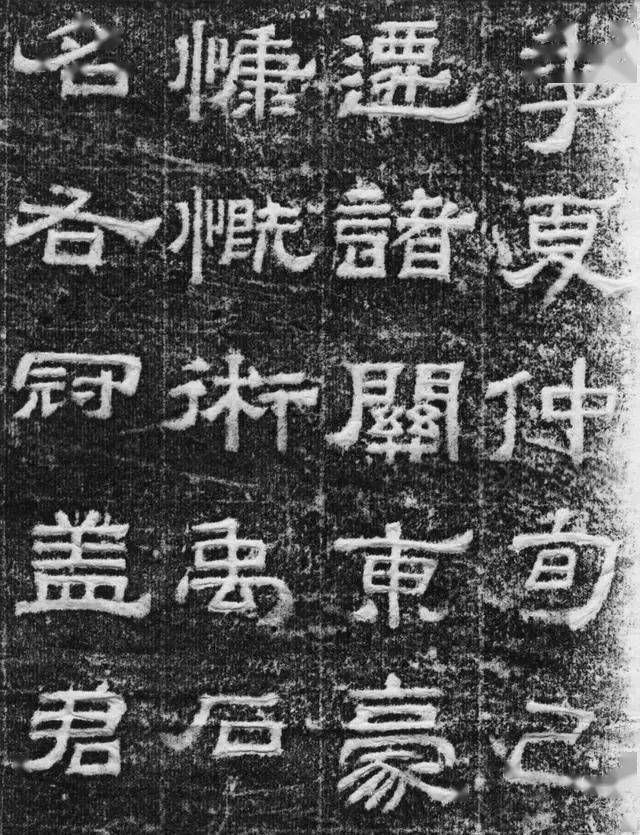 季夏仲旬己
遷諸關東豪
慷慨術禹石
名各冠盖君